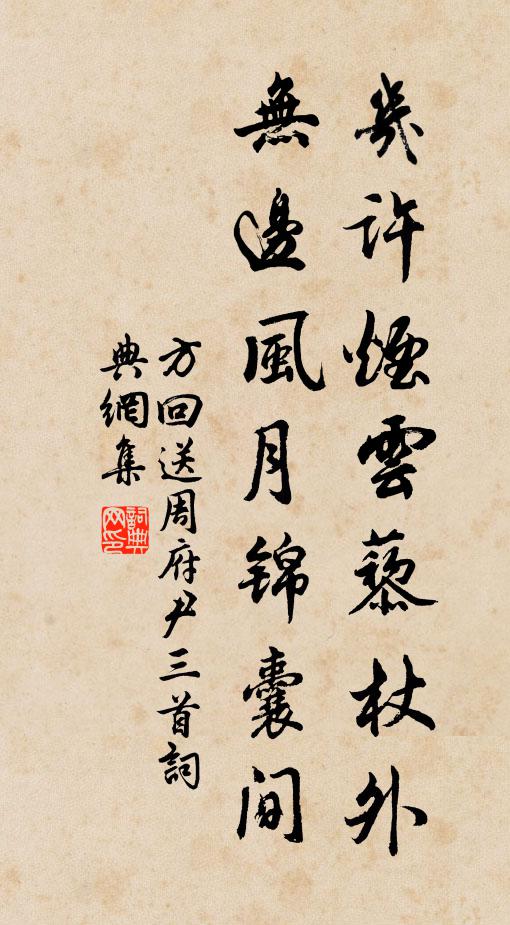 幾許煙雲藜杖外
無邊風月錦囊間
方回送周府尹三首詞
典網集
詞典網印